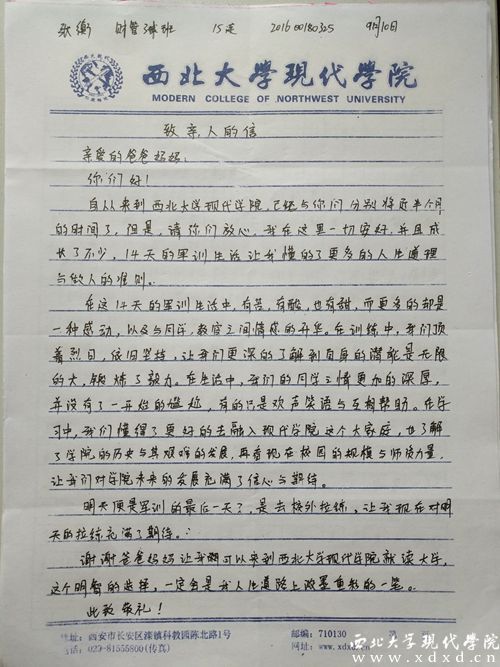 张 财管 班 15连 201600180325 9月10日
西北大學現代學院
MODERN COLLEGE OF NORTHWEST UNIVERSITY
致亲人的信
亲爱的爸爸妈妈：
你们好！
自从来到西北大学现代学院，已经与你们分别将近半个月
的时间了，但是，请你们放心，我在这里一切安好，并且成
长了不少，14天的军训生活让我懂的了更多的人生道理
与做人的准则。
在这14天的军训生活中，有苦，有酸，也有甜，而更多的却是
一种感动，以及与同学，教官之间情感的升华。在训练中，我们顶
着烈日，依旧坚持，让我们更深的了解到自身的潜能是无限
的大，锻炼了毅力。在生活中，我们的同学之情更加的深厚，
并没有了一开始的尴尬，有的只是欢声笑语与互相帮助。在学
习中，我们懂得了更好的去融入现代学院这个大家庭，也了解
了学院的历史与其艰难的发展，再看现在校园的规模与师资力量，
让我们对学院未来的发展充满了信心与期待。
明天便是军训的最后一天了，是去校外拉练，让我现在对明
天的拉练充满了期待。
谢谢爸爸妈妈让我可以来到西北大学现代学院就读大学，
这个明智的选择，一定会是我人生道路上浓墨重彩的一笔。
此致敬礼！
地址：西安市长安区滦镇科教园陈北路1号 邮编：710130
电话：029-81555800(传真) www.xdxd.cn
西北大學現代學院
www.xdxd.cn